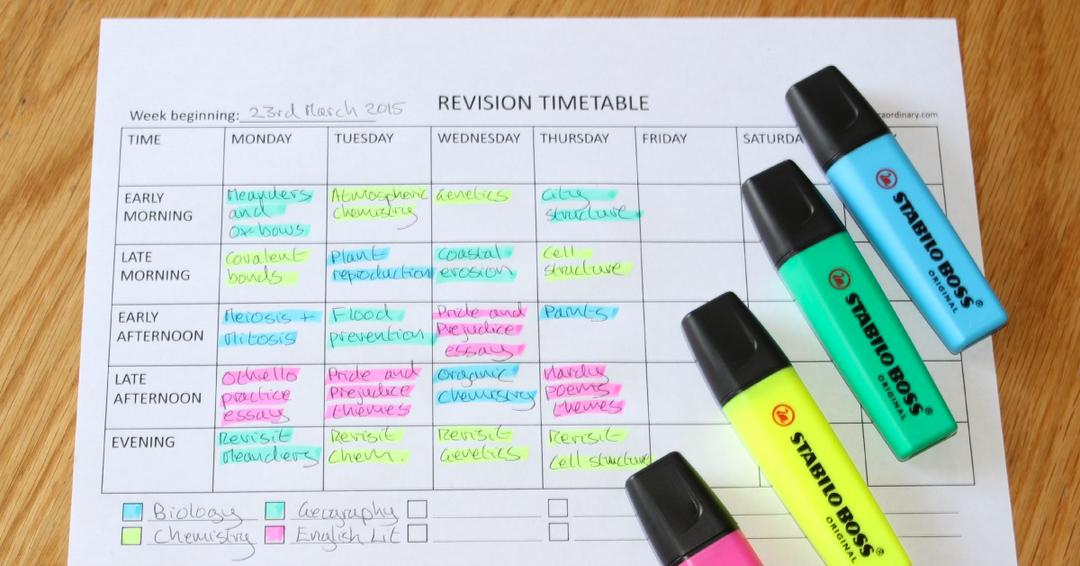 REVISION TIMETABLE
Week beginning: 23rd March 2015
raordinary.com
TIME MONDAY TUESDAY WEDNESDAY THURSDAY FRIDAY SATURDA
EARLY MORNING
Meanders and oxbows
Atmospheric chemistry
Genetics
City structure
LATE MORNING
Covalent bonds
Plant reproduction
Coastal erosion
Cell structure
EARLY AFTERNOON
Meiosis + Mitosis
Flood prevention
Pride and Prejudice essay
LATE AFTERNOON
Othello practice essay
Pride and Prejudice themes
Organic chemistry
Hardy poems themes
EVENING
Revisit Meanders
Revisit Chem.
Revisit Genetics
Revisit Cell structure
Biology
Geography
Chemistry
English Lit
STABILO BOSS®
ORIGINAL
STABILO BOSS®
ORIGINAL
STABILO BOSS®
ORIGINAL